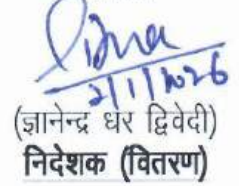 2/1/2026
(ज्ञानेन्द्र धर द्विवेदी)
निदेशक (वितरण)